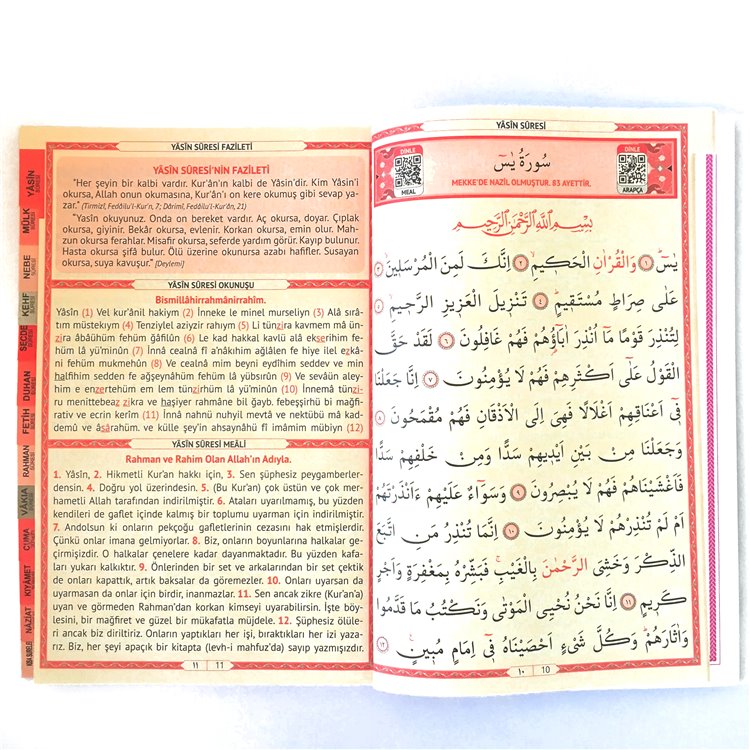 YÂSÎN SÛRESİ FAZİLETİ
YÂSÎN SÛRESİ'NİN FAZİLETİ
"Her şeyin bir kalbi vardır. Kur'ân'ın kalbi de Yâsin'dir. Kim Yâsin'i
okursa, Allah onun okumasına, Kur'ân'ı on kere okumuş gibi sevap ya-
zar." (Tirmizî, Fedâilu'l-Kur'n, 7; Dârimî, Fedâilu'l-Kur'ân, 21)
"Yasîn okuyunuz. Onda on bereket vardır. Aç okursa, doyar. Çıplak
okursa, giyinir. Bekâr okursa, evlenir. Korkan okursa, emin olur. Mah-
zun okursa ferahlar. Misafir okursa, seferde yardım görür. Kayıp bulunur.
Hasta okursa şifâ bulur. Ölü üzerine okunursa azabı hafifler. Susayan
okursa, suya kavuşur." [Deylemî]
YÂSÎN SÛRESİ OKUNUŞU
Bismillâhirrahmânirrahîm.
Yâsîn (1) Vel kur'ânil hakiym (2) İnneke le minel murseliyn (3) Alâ sırâ-
tım müstekıym (4) Tenziylel aziyzir rahıym (5) Li tünzira kavmem mâ ün-
zira âbâühüm fehüm ğâfilûn (6) Le kad hakkal kavlü alâ ekserihim fe-
hüm lâ yü'minûn (7) İnnâ cealnâ fî a'nâkıhim ağlâlen fe hiye ilel ezkâ-
ni fehüm mukmehûn (8) Ve cealnâ mim beyni eydîhim seddev ve min
halfihim sedden fe ağşeynâhüm fehüm lâ yübsırûn (9) Ve sevâün aley-
him e enzertehüm em lem tünzirhüm lâ yü'minûn (10) İnnemâ tünzi-
ru menittebeaz zikra ve haşiyer rahmâne bil ğayb. febeşşirhü bi mağfi-
rativ ve ecrin kerîm (11) İnnâ nahnü nuhyil mevtâ ve nektübü mâ kad-
demû ve âsârahüm. ve külle şey'in ahsaynâhü fî imâmim mübiyn (12)
YÂSÎN SÛRESİ MEÂLİ
Rahman ve Rahim Olan Allah'ın Adıyla.
1. Yâsîn, 2. Hikmetli Kur'an hakkı için, 3. Sen şüphesiz peygamberler-
densin. 4. Doğru yol üzerindesin. 5. (Bu Kur'an) çok üstün ve çok mer-
hametli Allah tarafından indirilmiştir. 6. Ataları uyarılmamış, bu yüzden
kendileri de gaflet içinde kalmış bir toplumu uyarman için indirilmiştir.
7. Andolsun ki onların pekçoğu gafletlerinin cezasını hak etmişlerdir.
Çünkü onlar imana gelmiyorlar. 8. Biz, onların boyunlarına halkalar ge-
çirmişizdir. O halkalar çenelere kadar dayanmaktadır. Bu yüzden kafa-
ları yukarı kalkıktır. 9. Önlerinden bir set ve arkalarından bir set çektik
de onları kapattık, artık baksalar da göremezler. 10. Onları uyarsan da
uyarmasan da onlar için birdir, inanmazlar. 11. Sen ancak zikre (Kur'an'a)
uyan ve görmeden Rahman'dan korkan kimseyi uyarabilirsin. İşte böy-
lesini, bir mağfiret ve güzel bir mükafatla müjdele. 12. Şüphesiz ölüle-
ri ancak biz diriltiriz. Onların yaptıkları her işi, bıraktıkları her izi yaza-
rız. Biz, her şeyi apaçık bir kitapta (levh-i mahfuz'da) sayıp yazmışızdır.
١١ 11
YÂSİN SÛRESİ
MÜLK SÛRESİ
NEBE SÛRESİ
KEHF SÛRESİ
SECDE
DUHAN SÛRESİ
FETİH SÛRESİ
RAHMAN SÛRESİ
VÂKIA SÛRESİ
CUMA
KIYÂMET
NÂZİÂT
YÂSÎN SÛRESİ
DİNLE
MEAL
سُورَةُ يٰسٓ
MEKKE'DE NAZİL OLMUŞTUR. 83 AYETTİR.
DİNLE
ARAPÇA
بِسْمِ اللّٰهِ الرَّحْمٰنِ الرَّحِيمِ
يٰسٓ ١ وَالْقُرْاٰنِ الْحَكِيمِ ٢ اِنَّكَ لَمِنَ الْمُرْسَلِينَ ٣
عَلٰى صِرَاطٍ مُسْتَقِيمٍ ٤ تَنْزِيلَ الْعَزِيزِ الرَّحِيمِ ٥
لِتُنْذِرَ قَوْمًا مَٓا اُنْذِرَ اٰبَٓاؤُ۬هُمْ فَهُمْ غَافِلُونَ ٦ لَقَدْ حَقَّ
الْقَوْلُ عَلٰٓى اَكْثَرِهِمْ فَهُمْ لَا يُؤْمِنُونَ ٧ اِنَّا جَعَلْنَا
فِٓي اَعْنَاقِهِمْ اَغْلَالًا فَهِيَ اِلَى الْاَذْقَانِ فَهُمْ مُقْمَحُونَ ٨
وَجَعَلْنَا مِنْ بَيْنِ اَيْدِيهِمْ سَدًّا وَمِنْ خَلْفِهِمْ سَدًّا
فَاَغْشَيْنَاهُمْ فَهُمْ لَا يُبْصِرُونَ ٩ وَسَوَٓاءٌ عَلَيْهِمْ ءَاَنْذَرْتَهُمْ
اَمْ لَمْ تُنْذِرْهُمْ لَا يُؤْمِنُونَ ١٠ اِنَّمَا تُنْذِرُ مَنِ اتَّبَعَ
الذِّكْرَ وَخَشِيَ الرَّحْمٰنَ بِالْغَيْبِ فَبَشِّرْهُ بِمَغْفِرَةٍ وَاَجْرٍ
كَرِيمٍ ١١ اِنَّا نَحْنُ نُحْيِي الْمَوْتٰى وَنَكْتُبُ مَا قَدَّمُوا
وَاٰثَارَهُمْ وَكُلَّ شَيْءٍ اَحْصَيْنَاهُ فِٓي اِمَامٍ مُبِينٍ ١٢
١٠ 10